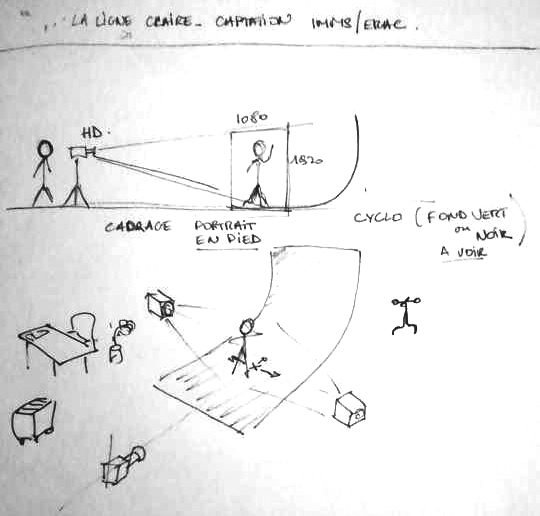 LA LIGNE CLAIRE - CAPTATION IMMS/ERAC.
1080
HD.
1920
CADRAGE PORTRAIT
EN PIED
CYCLO (FOND VERT
ou NOIR)
A VOIR